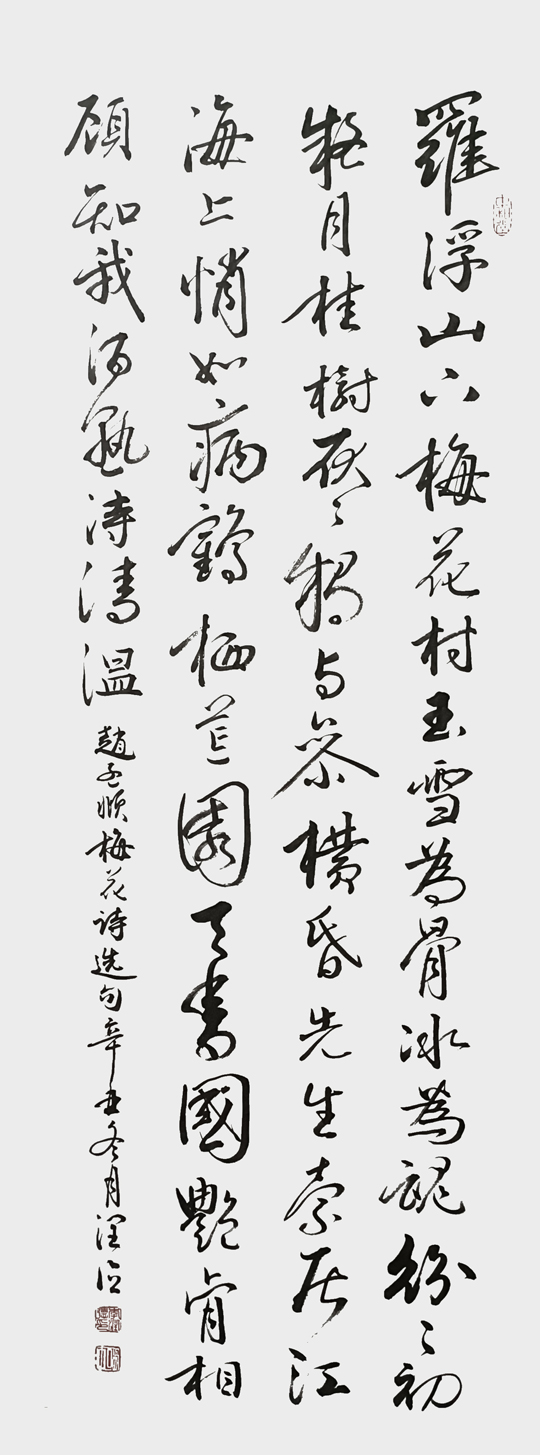 羅浮山下梅花村玉雪為骨冰為魂紛々初
疑月桂樹耿々獨与參橫昏先生索居江
海上悄如病鶴栖荒園天香國艷肯相
顧知我酒熟詩清溫 趙孟頫梅花詩選句辛丑冬月潤